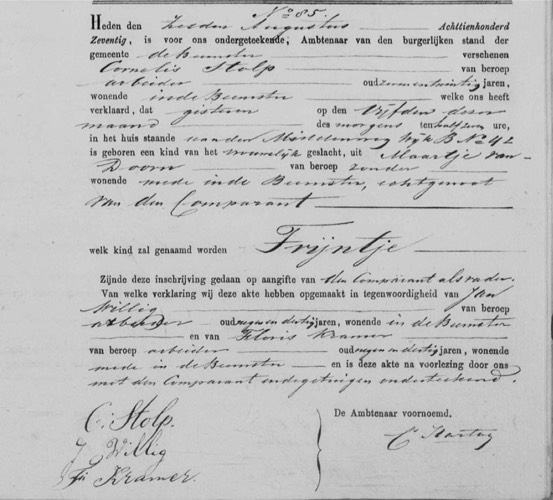 No 85.
Heden den zesden Augustus Achttienhonderd
Zeventig, is voor ons ondergeteekende, Ambtenaar van den burgerlijken stand der
gemeente de Beemster verschenen
Cornelis Stolp van beroep
arbeider oud zevenentwintig jaren,
wonende in de Beemster welke ons heeft
verklaard, dat gisteren op den vijfden dezer
maand des morgens ten half zes ure,
in het huis staande aan den Middenweg wijk B No 42
is geboren een kind van het vrouwelijk geslacht, uit Maartje van
Doorn van beroep zonder
wonende mede in de Beemster, echtgenoot
van den Comparant
welk kind zal genaamd worden Trijntje
Zijnde deze inschrijving gedaan op aangifte van den Comparant als vader.
Van welke verklaring wij deze akte hebben opgemaakt in tegenwoordigheid van Jan
Willig van beroep
arbeider oud negenendertig jaren, wonende in de Beemster
en van Floris Kramer
van beroep arbeider oud negenendertig jaren, wonende
mede in de Beemster en is deze akte na voorlezing door ons
met den Comparant en de getuigen onderteekend.
C. Stolp.
J Willig
Fs Kramer.
De Ambtenaar voornoemd.
C